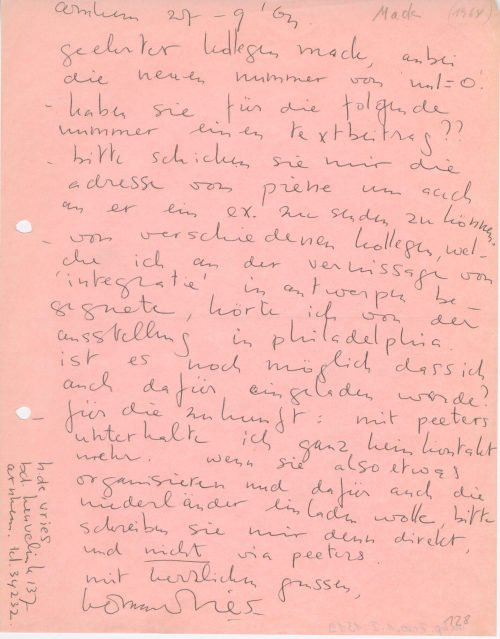 arnhem 27-9'64
Mack (1964)
geehrter kollegen mack, anbei
die neuen nummer von 'nul=0'.
- haben sie für die folgende
nummer einen textbeitrag??
- bitte schicken sie mir die
adresse von piene um auch
an er ein ex. zu senden zu können.
- von verschiedenen kollegen, wel-
che ich an der vernissage von
'integratie' in antwerpen be-
gegnete, hörte ich von der
ausstellung in philadelphia.
ist es noch möglich dass ich
auch dafür eingeladen werde?
- für die zukunft: mit peeters
unterhalte ich ganz kein kontakt
mehr. wenn sie also etwas
organisieren und dafür auch die
niederländer einladen wolle, bitte
schreiben sie mir denn direkt,
und nicht via peeters.
mit herzlichen grussen,
herman de vries.
h de vries
arnhem. tel. 34232.
128